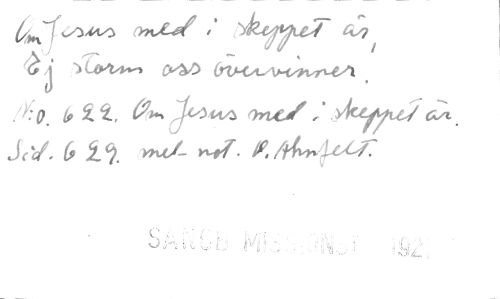 Om Jesus med i skeppet är,
Ej storm oss övervinner.
N:o. 622. Om Jesus med i skeppet är.
Sid. 629. mel. not. O. Ahnfelt.